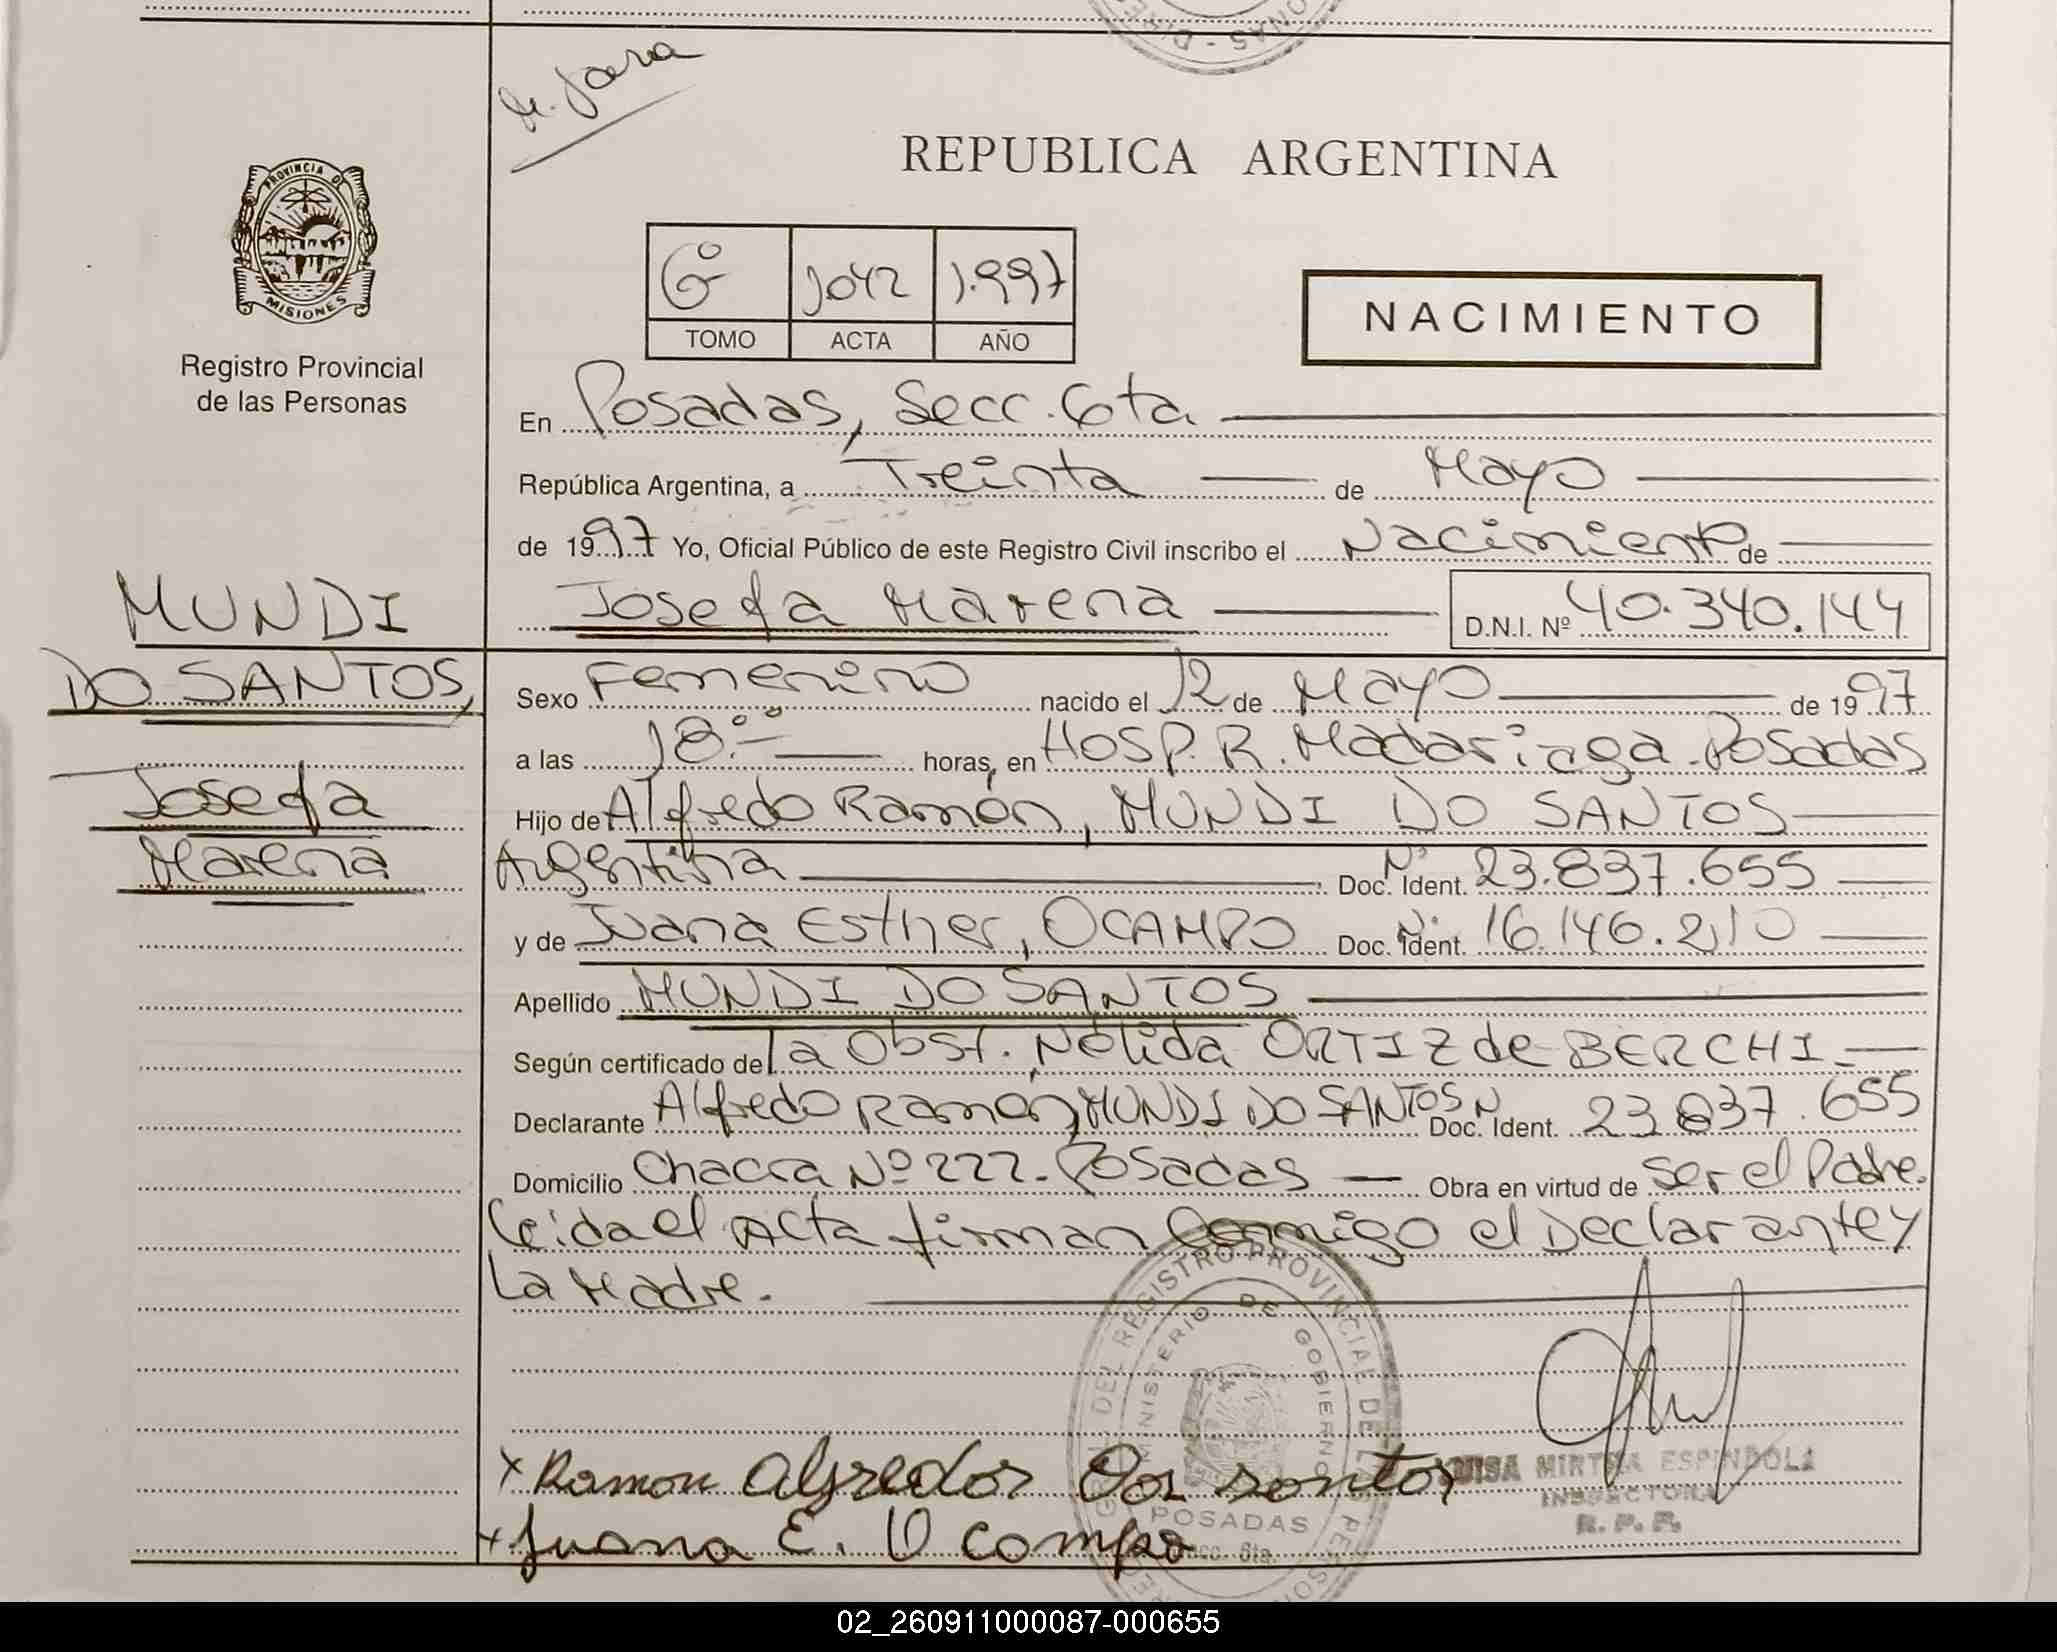 de Jara
PROVINCIA DE
MISIONES
Registro Provincial
de las Personas
REPUBLICA ARGENTINA
6º 1042 1.997
TOMO ACTA AÑO
NACIMIENTO
En Posadas, Secc. 6ta
República Argentina, a Treinta de Mayo
de 1997 Yo, Oficial Público de este Registro Civil inscribo el Nacimiento de
Josefa Marena D.N.I. Nº 40.340.144
MUNDI
DO SANTOS,
Josefa
Marena
Sexo Femenino nacido el 12 de Mayo de 1997
a las 18:00 horas, en HOSP. R. Madariaga. Posadas
Hijo de Alfredo Ramón, MUNDI DO SANTOS
Argentina Doc. Nº Ident. 23.837.655
y de Juana Esther, OCAMPO Doc. Nº Ident. 16.146.210
Apellido MUNDI DO SANTOS
Según certificado de la Obst. Nélida ORTIZ de BERCHI
Declarante Alfredo Ramón, MUNDI DO SANTOS N Doc. Ident. 23.837.655
Domicilio Chacra Nº 222. Posadas Obra en virtud de ser el Padre.
Leida el Acta firman conmigo el Declarante y
La Madre.
REGISTRO PROVINCIAL DE LAS PERSONAS
MINISTERIO DE GOBIERNO
POSADAS
Secc. 6ta.
x Ramon Alfredor Dos Santos
x Juana E. Ocampo
LUISA MIRTHA ESPINDOLA
INSPECTORA
R. P. P.
02_260911000087-000655